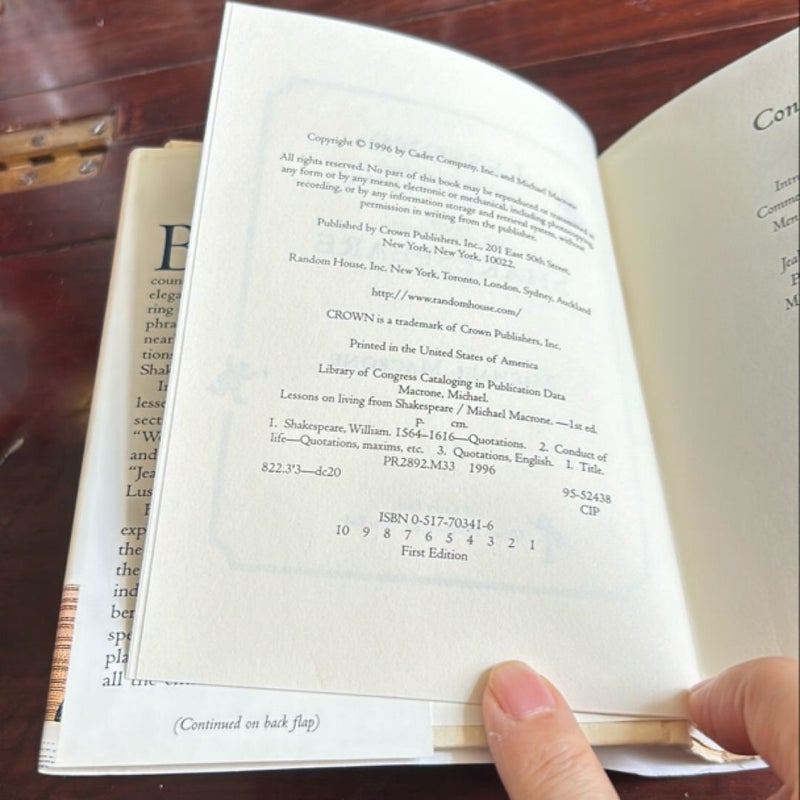 Copyright © 1996 by Cader Company, Inc., and Michael Macrone
All rights reserved. No part of this book may be reproduced or transmitted in
any form or by any means, electronic or mechanical, including photocopying,
recording, or by any information storage and retrieval system, without
permission in writing from the publisher.
Published by Crown Publishers, Inc., 201 East 50th Street,
New York, New York, 10022.
Random House, Inc. New York, Toronto, London, Sydney, Auckland
http://www.randomhouse.com/
CROWN is a trademark of Crown Publishers, Inc.
Printed in the United States of America
Library of Congress Cataloging in Publication Data
Macrone, Michael.
Lessons on living from Shakespeare / Michael Macrone. —1st ed.
p. cm.
1. Shakespeare, William. 1564–1616—Quotations. 2. Conduct of
life—Quotations, maxims, etc. 3. Quotations, English. 1. Title.
PR2892.M33 1996
822.3'3—dc20
95-52438
CIP
ISBN 0-517-70341-6
10 9 8 7 6 5 4 3 2 1
First Edition
B
coun
elega
ring
phra
near
tions
Shak
In
lesse
sect
"We
and
"Jea
Lus
F
exp
the
the
ind
ber
spe
pla
all the
(Continued on back flap)
Con
Intr
Comme
Men
Jeal
M